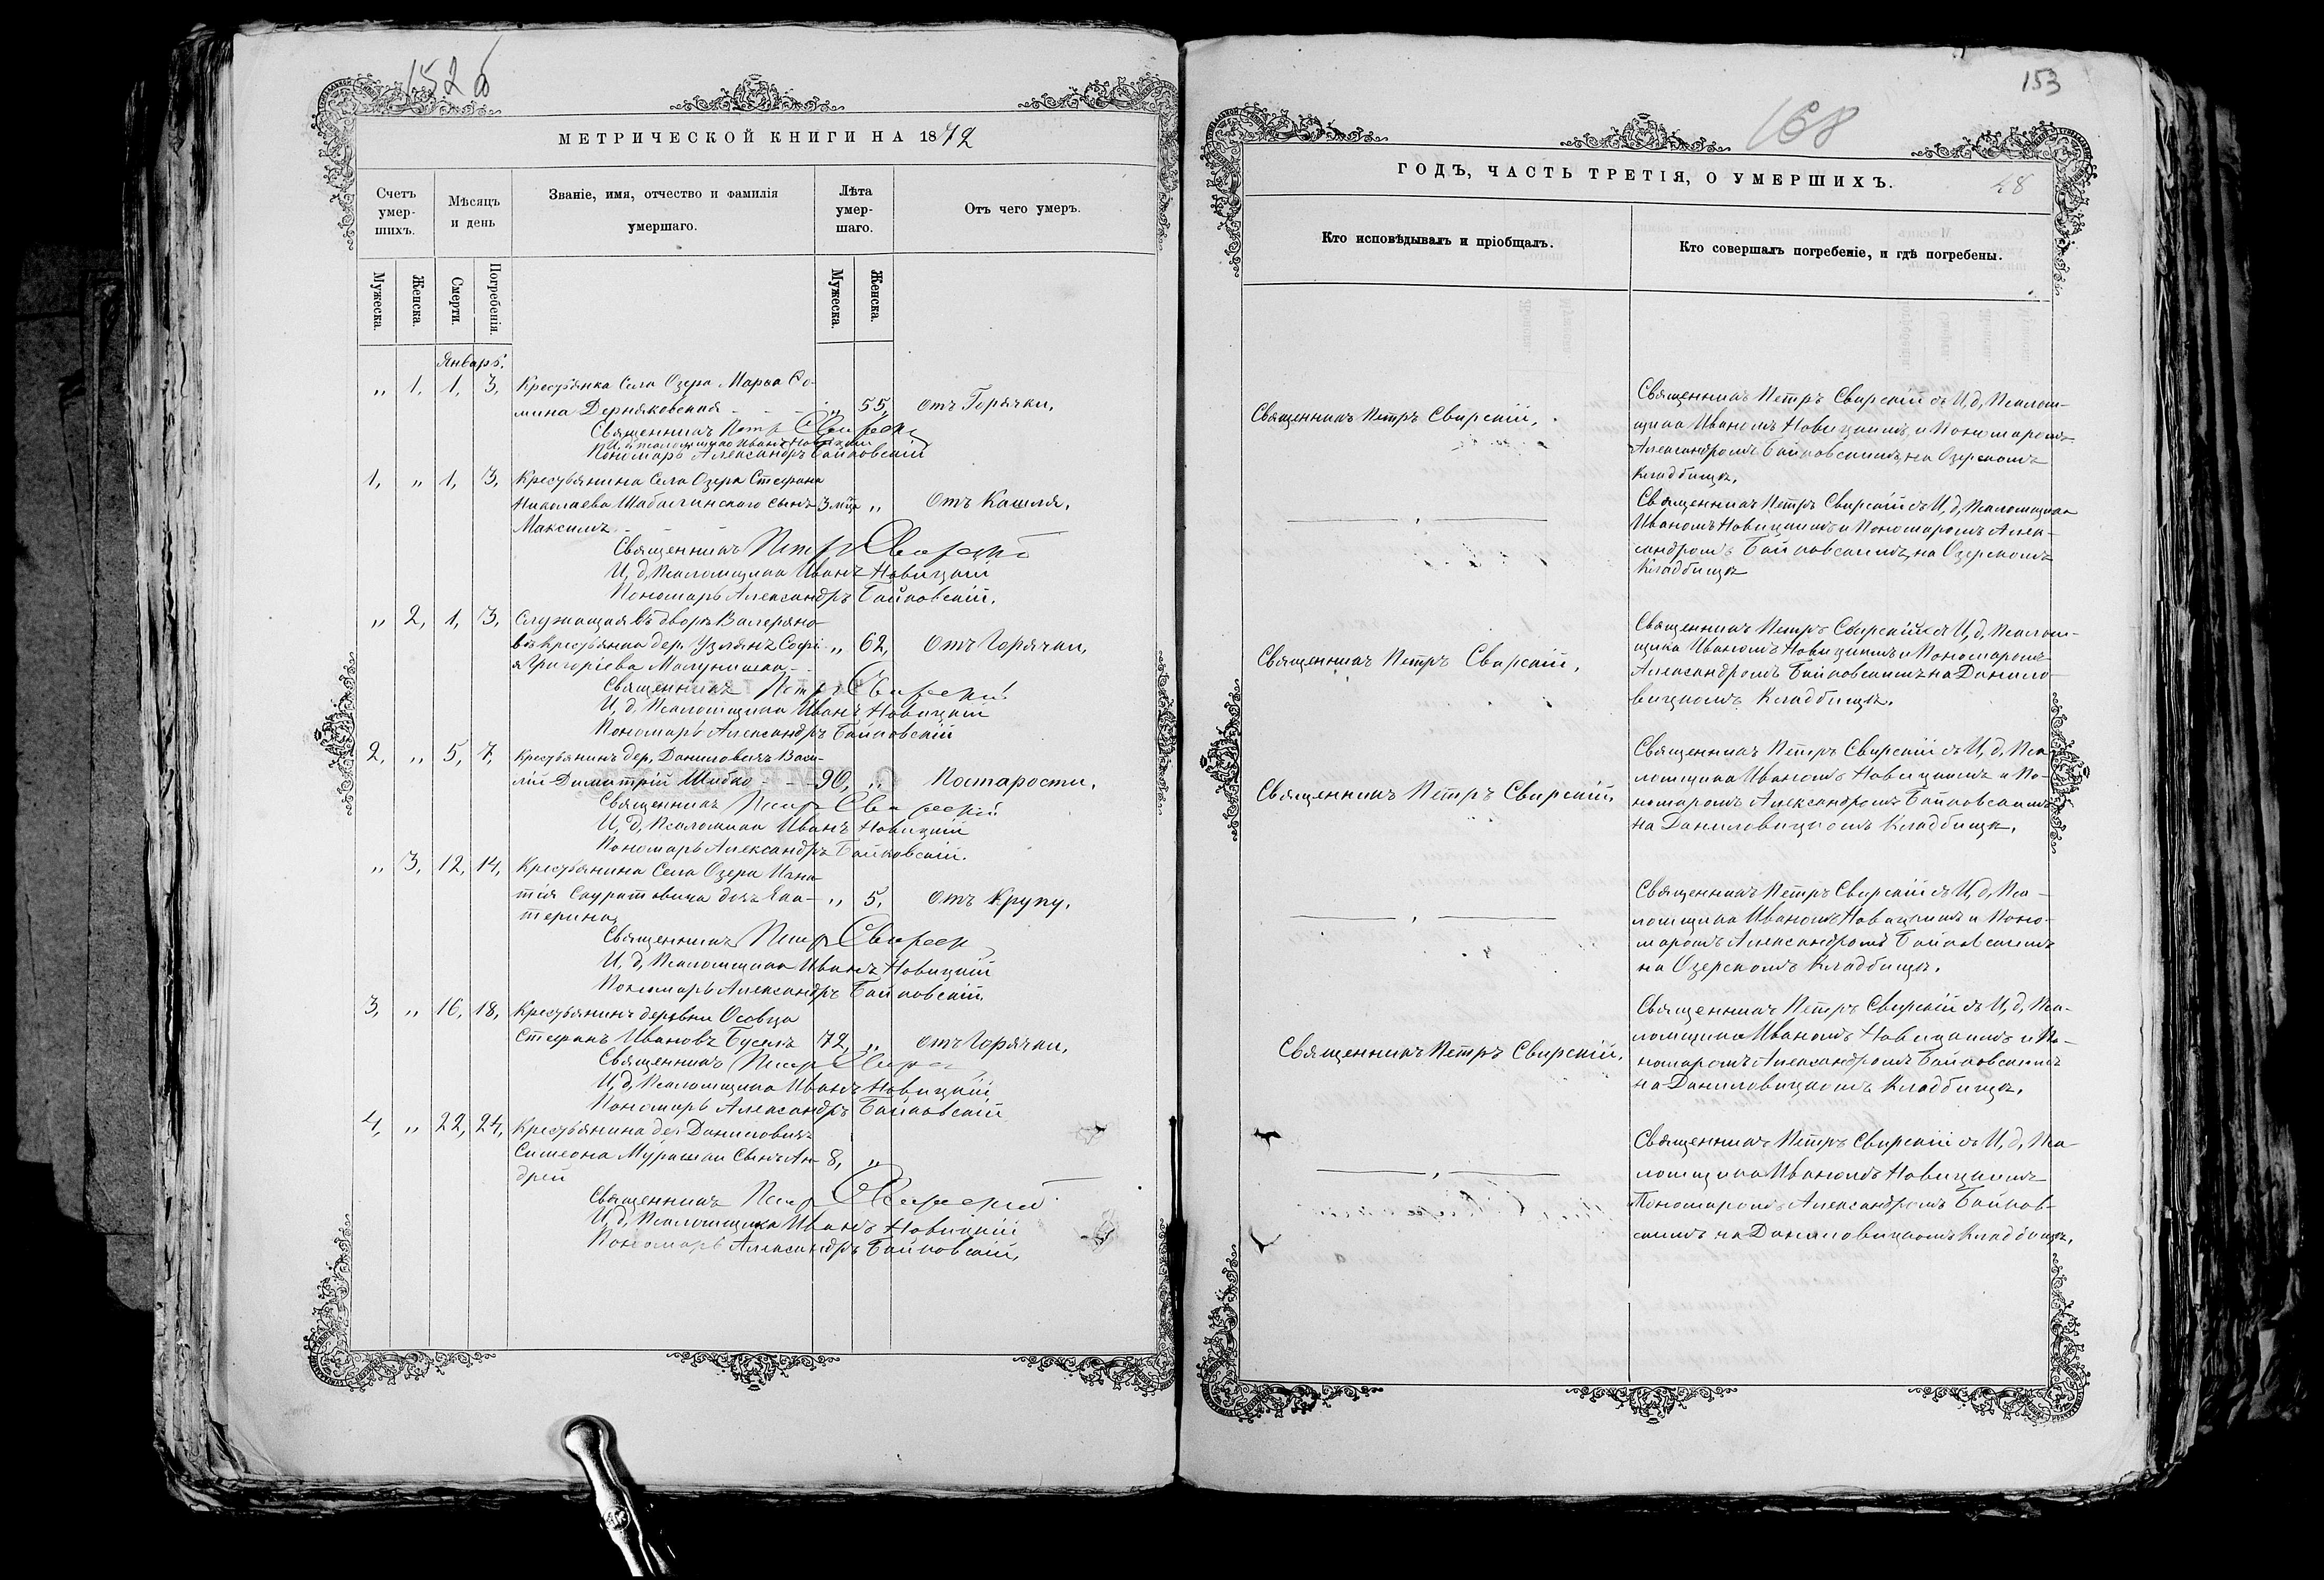 152 об
МЕТРИЧЕСКОЙ КНИГИ НА 1872
Счетъ умершихъ.
Мѣсяцъ и день
Званіе, имя, отчество и фамилія умершаго.
Лѣта умершаго.
Отъ чего умеръ.
Мужеска.
Женска.
Смерти.
Погребенія.
Мужеска.
Женска.
Январь.
„ 1, 1, 3, Крестьянка Села Озера Марѳа Ѳо-
мина Дерняковская - - - „ 55, отъ Горячки,
Священникъ Петръ Свирскій
И, д, псаломщика Иванъ Новицкій
Пономарь Александръ Байковскій
1, „ 1, 3, Крестьянина Села Озера Стефана
Николаева Шабасинского сынъ 3 мѣца „ Отъ Кашля,
Максимъ - -
Священникъ Петръ Свирскій
И, д, Псаломщика Иванъ Новицкій
Пономарь Александръ Байковскій.
„ 2, 1, 3, Служащая въ дворѣ Валеряно-
вѣ крестьянка дер. Узлянъ Софі- „ 62, Отъ Горячки,
я Григоріева - -
Священникъ Петръ Свирскій
И, д, Псаломщика Иванъ Новицкій
Пономарь Александръ Байковскій
2, „ 5, 7, Крестьянинъ дер, Даниловичъ Васи-
лій Димитрій Шибко - - 90, „ По старости,
Священникъ Петръ Свирскій
И, д, Псаломщика Иванъ Новицкій
Пономарь Александръ Байковскій.
„ 3, 12, 14, Крестьянина Села Озера Игна-
тія дочь Ека- „ 5, Отъ Крупу,
терина
Священникъ Петръ Свирскій
И, д, Псаломщика Иванъ Новицкій
Пономарь Александръ Байковскій,
3, „ 16, 18, Крестьянинъ деревни Осовца
Стефанъ Ивановъ Бусель 72, „ отъ Горячки,
Священникъ Петръ Свирскій
И, д, Псаломщика Иванъ Новицкій
Пономарь Александръ Байковскій
4, „ 22, 24, Крестьянина дер. Даниловичъ
Симеона Мурашки Сынъ Ан- 8, „
дрей
Священникъ Петръ Свирскій
И, д, Псаломщика Иванъ Новицкій
Пономарь Александръ Байковскій,
153
168
48
ГОДЪ, ЧАСТЬ ТРЕТІЯ, О УМЕРШИХЪ.
Кто исповѣдывалъ и пріобщалъ.
Кто совершалъ погребеніе, и гдѣ погребены.
Священникъ Петръ Свирскій,
Священникъ Петръ Свирскій съ И, д, Псалом-
щика Иваномъ Новицкимъ, и Пономаромъ
Александромъ Байковскимъ, на Озерскомъ
Кладбищѣ,
Священникъ Петръ Свирскій съ И, д, Псаломщика
Иваномъ Новицкимъ и Пономаромъ Алек-
сандромъ Байковскимъ, на Озерскомъ
Кладбищѣ
Священникъ Петръ Свирскій,
Священникъ Петръ Свирскій съ И, д, Псалом-
щика Иваномъ Новицкимъ и Пономаромъ
Александромъ Байковскимъ на Данило-
вицкомъ Кладбищѣ.
Священникъ Петръ Свирскій,
Священникъ Петръ Свирскій съ И, д, Пса-
ломщика Иваномъ Новицкимъ и По-
номаромъ Александромъ Байковскимъ
на Даниловицкомъ Кладбищѣ.
Священникъ Петръ Свирскій съ И, д, Пса-
ломщика Иваномъ Новицкимъ и Поно-
маромъ Александромъ Байковскимъ
на Озерскомъ Кладбищѣ.
Священникъ Петръ Свирскій,
Священникъ Петръ Свирскій съ И, д, Пса-
ломщика Иваномъ Новицкимъ и По-
номаромъ Александромъ Байковскимъ
на Даниловицкомъ Кладбищѣ.
Священникъ Петръ Свирскій съ И, д, Пса-
ломщика Иваномъ Новицкимъ
Пономаромъ Александромъ Байков-
скимъ на Даниловицкомъ Кладбищѣ,